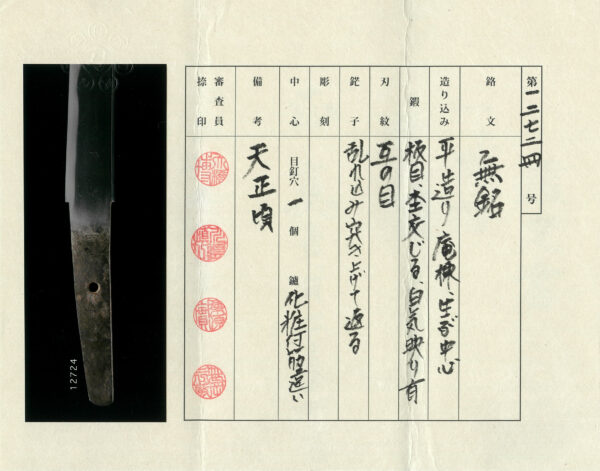 第一二七二四号
銘文 無銘
造り込み 平造り、庵棟、生ぶ中心
鍛 板目、杢交じる、白気映り有
刃紋 互の目
鋩子 乱れ込み突き上げて返る
彫刻
中心 目釘穴 一 個 鑢 化粧付筋違い
備考 天正頃
審査員
捺印
12724